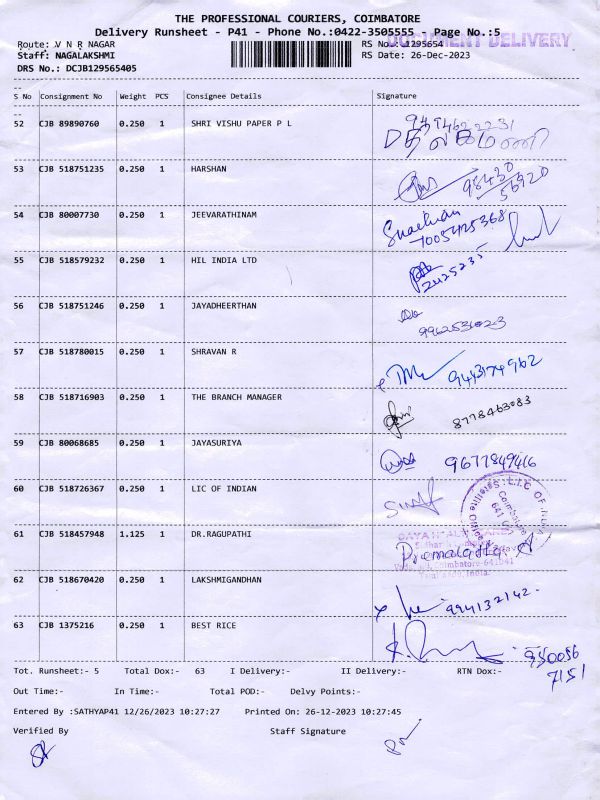 THE PROFESSIONAL COURIERS, COIMBATORE
Delivery Runsheet - P41 - Phone No.:0422-3505555 - Page No.:5
DOCUMENT DELIVERY
Route: V N R NAGAR
RS No.:1295654
Staff: NAGALAKSHMI
RS Date: 26-Dec-2023
DRS No.: DCJB129565405
S No Consignment No Weight PCS Consignee Details Signature
52 CJB 89890760 0.250 1 SHRI VISHU PAPER P L
53 CJB 518751235 0.250 1 HARSHAN 98430
56920
54 CJB 80007730 0.250 1 JEEVARATHINAM
7005425368
55 CJB 518579232 0.250 1 HIL INDIA LTD
2425235
56 CJB 518751246 0.250 1 JAYADHEERTHAN
9962531023
57 CJB 518780015 0.250 1 SHRAVAN R
9443174962
58 CJB 518716903 0.250 1 THE BRANCH MANAGER 8778463083
59 CJB 80068685 0.250 1 JAYASURIYA
9677849416
60 CJB 518726367 0.250 1 LIC OF INDIAN
61 CJB 518457948 1.125 1 DR.RAGUPATHI
Premalatha A
62 CJB 518670420 0.250 1 LAKSHMIGANDHAN
994132142
63 CJB 1375216 0.250 1 BEST RICE
950056
7151
Tot. Runsheet:- 5 Total Dox:- 63 I Delivery:- II Delivery:- RTN Dox:-
Out Time:- In Time:- Total POD:- Delvy Points:-
Entered By :SATHYAP41 12/26/2023 10:27:27 Printed On: 26-12-2023 10:27:45
Verified By Staff Signature